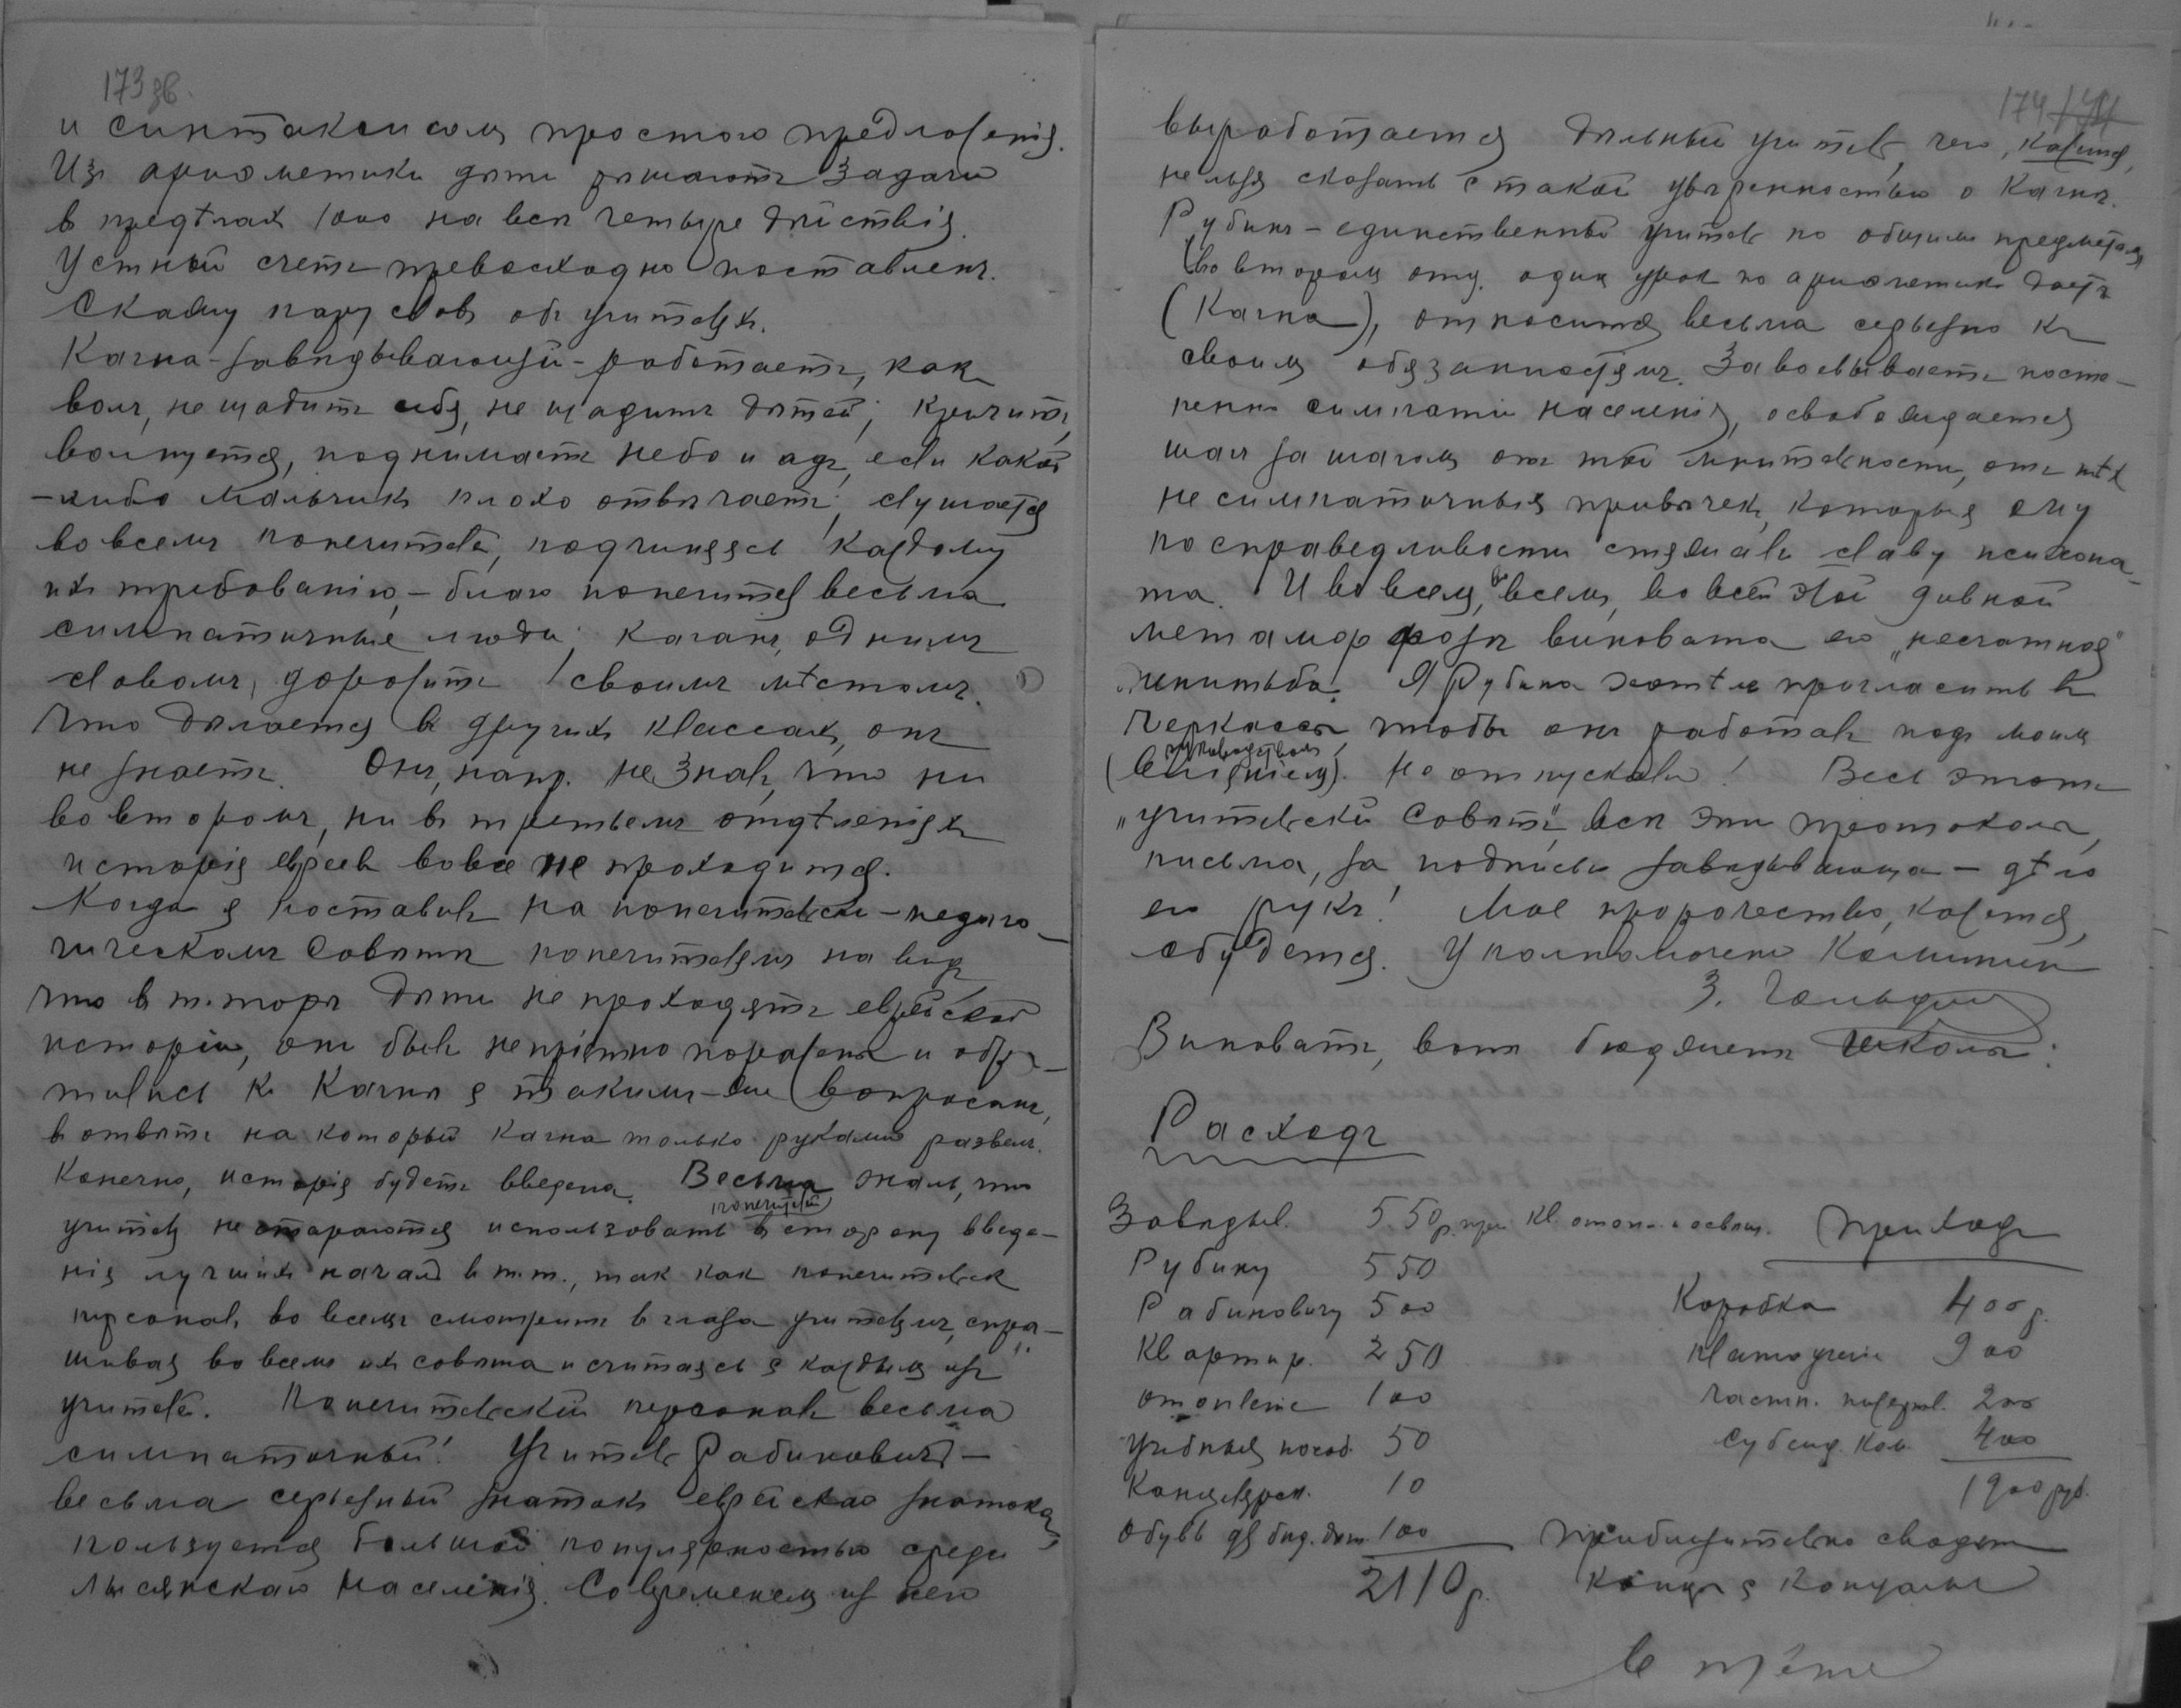 173 зв.
и синтаксисомъ простого предложенія.
Изъ ариѳметики дѣти рѣшаютъ задачи
в предѣлах 1000 на всѣ четыре дѣйствія.
Устный счетъ превосходно поставленъ.
Скажу пару словъ объ учителяхъ.
Кагна - завѣдывающій - работаетъ, какъ
волъ, не щадитъ себя, не щадитъ дѣтей; кричитъ,
волнуется, поднимаетъ небо и адъ, если какой
-либо мальчикъ плохо отвѣчаетъ; слушается
во всемъ попечителей, подчиняясь каждому
ихъ требованію, - благо попечителя весьма
симпатичные люди; Каганъ, однимъ
словомъ, дорожитъ своимъ мѣстомъ.
Что дѣлается в другихъ классахъ, онъ
не знаетъ. Онъ, напр. не зналъ, что ни
во второмъ, ни въ третьемъ отдѣленіяхъ
исторія евреевъ вовсе не проходится.
Когда я поставилъ на попечительско-педаго-
гическомъ Совѣтѣ попечителямъ на видъ,
что в т.-торѣ дѣти не проходятъ еврейской
исторіи, они были непріятно поражены и обра-
тились къ Кагнѣ с такимъ-же вопросомъ,
в отвѣтъ на который Кагна только руками развелъ.
Конечно, исторія будетъ введена. Весьма жаль, что
попечителей
учителя не стараются использовать в сторону введе-
нія лучшихъ началъ в т.т., так как попечительск
персоналъ во всемъ смотритъ в глаза учителямъ, спра-
шивая во всемъ ихъ совѣта и считаясь с каждымъ изъ
учителей. Попечительскій персоналъ весьма
симпатичный! Учитель Рабиновичъ -
весьма серьезный знатокъ еврейскаго
пользуется большой популярностью среди
лысянскаго населенія. Со временемъ изъ него
174
выработается дѣльный учитель, чего, кажется,
нельзя сказать с такой увѣренностью о Кагнѣ.
Рубинъ - единственный учитель по общимъ предметамъ
(во второмъ отд. один урок по ариѳметикѣ даетъ
(Кагна), относится весьма серьезно къ
своимъ обязанностямъ. Завоевываетъ посте-
пенно симпатіи населенія, освобождается
шагъ за шагомъ отъ той мнительности, отъ тѣхъ
несимпатичныхъ привычекъ, которыя ему
по справедливости стяжали славу психопа-
та. И во всемъ, во всемъ, во всей этой дивной
метаморфозѣ виновата его „несчастная"
женитьба! Я Рубина хотѣлъ пригласить в
Черкассы, чтобы онъ работалъ подъ моимъ
руководствомъ
(вліяніемъ). Не отпускали! Весь этотъ
„учительскій Совѣтъ", всѣ эти протоколы,
письма, за подписью завѣдывающа - дѣло
его рукъ! Мое пророчество, кажется,
сбудется. Уполномочен Комитет
З. Гольдин
Виноватъ, вотъ бюджетъ школы:
Расходъ
Завѣдыв. 550 р. при кв. отопл. и освѣщ.
Рубину 550
Рабиновичу 500
Квартир. 250
Отопленіе 100
Учебныя пособ. 50
Канцелярск. 10
Обувь дл бѣд. дѣт. 100
2110 р.
Приходъ
Коробка 400 р.
Плата учен 900
Частн. пожертв. 200
Субсид. Ком. 400
1900 руб.
Приблизительно сводят
концы с концами